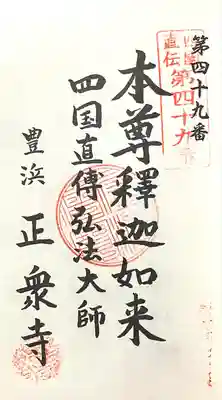 第四十九番
直伝第四十九
本尊釋迦如来
四国直傳弘法大師
豊浜 正衆寺